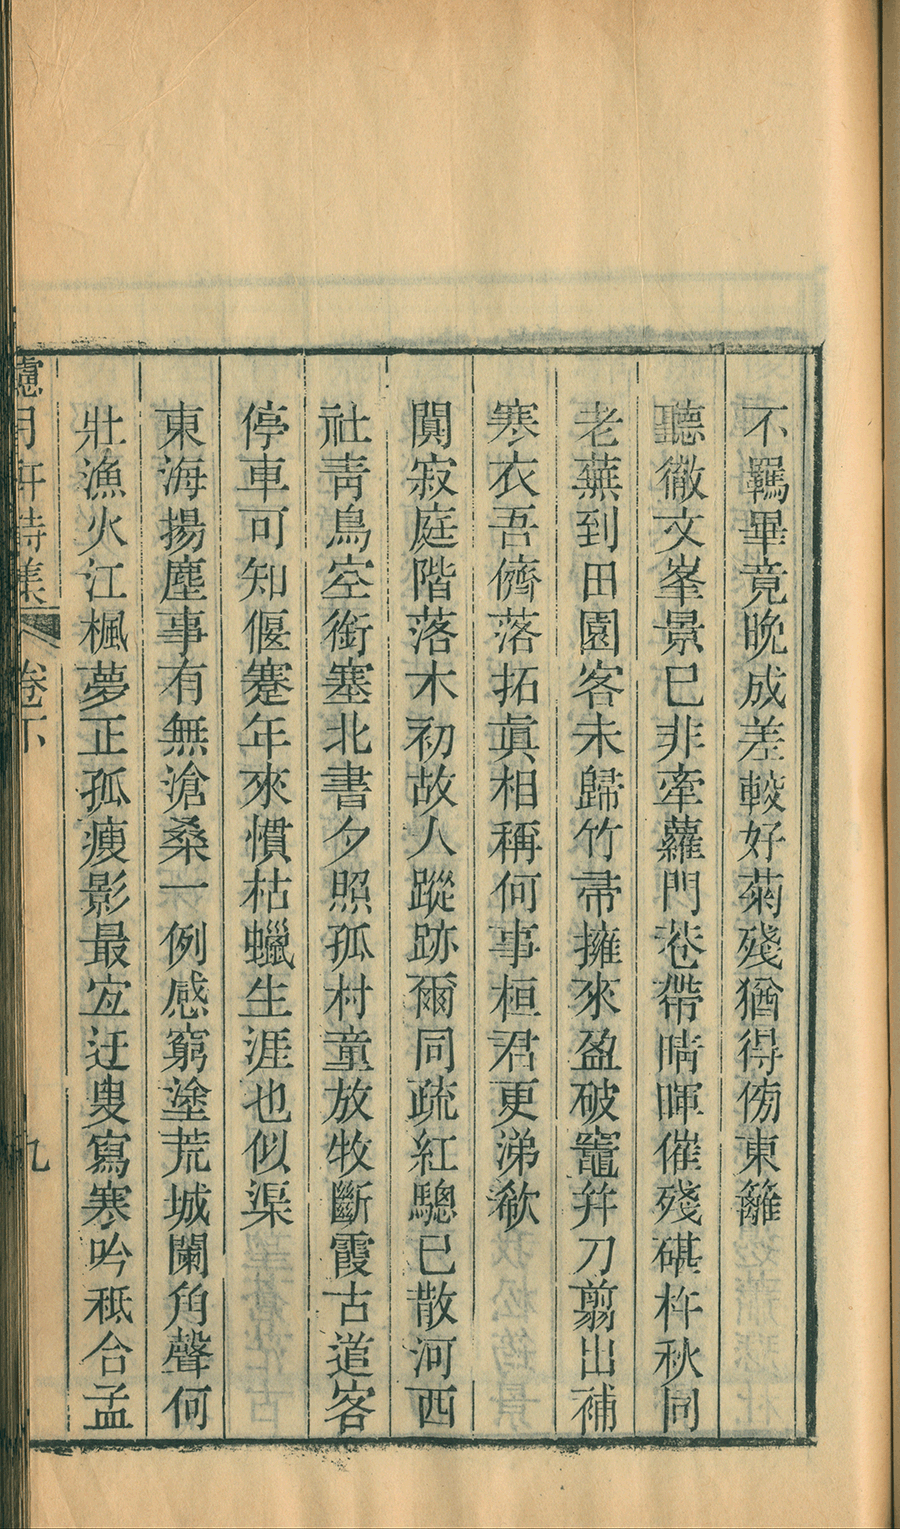 不羈畢竟晩成差較好菊殘猶得傍東籬
聽徹文峯景已非牽蘿門巷帶晴暉催殘碪杵秋同
老蕪到田園客未歸竹帚擁來盈破竈幷刀翦出補
寒衣吾儕落拓眞相稱何事桓君更涕欷
闃寂庭階落木初故人蹤跡爾同疏紅驄已散河西
社靑鳥空銜塞北書夕照孤村童放牧斷霞古道客
停車可知偃蹇年來慣枯蠟生涯也似渠
東海揚塵事有無滄桑一例感窮塗荒城闌角聲何
壯漁火江楓夢正孤瘦影最宐迂叟寫寒吟秪合孟
月軒詩集 卷下 九